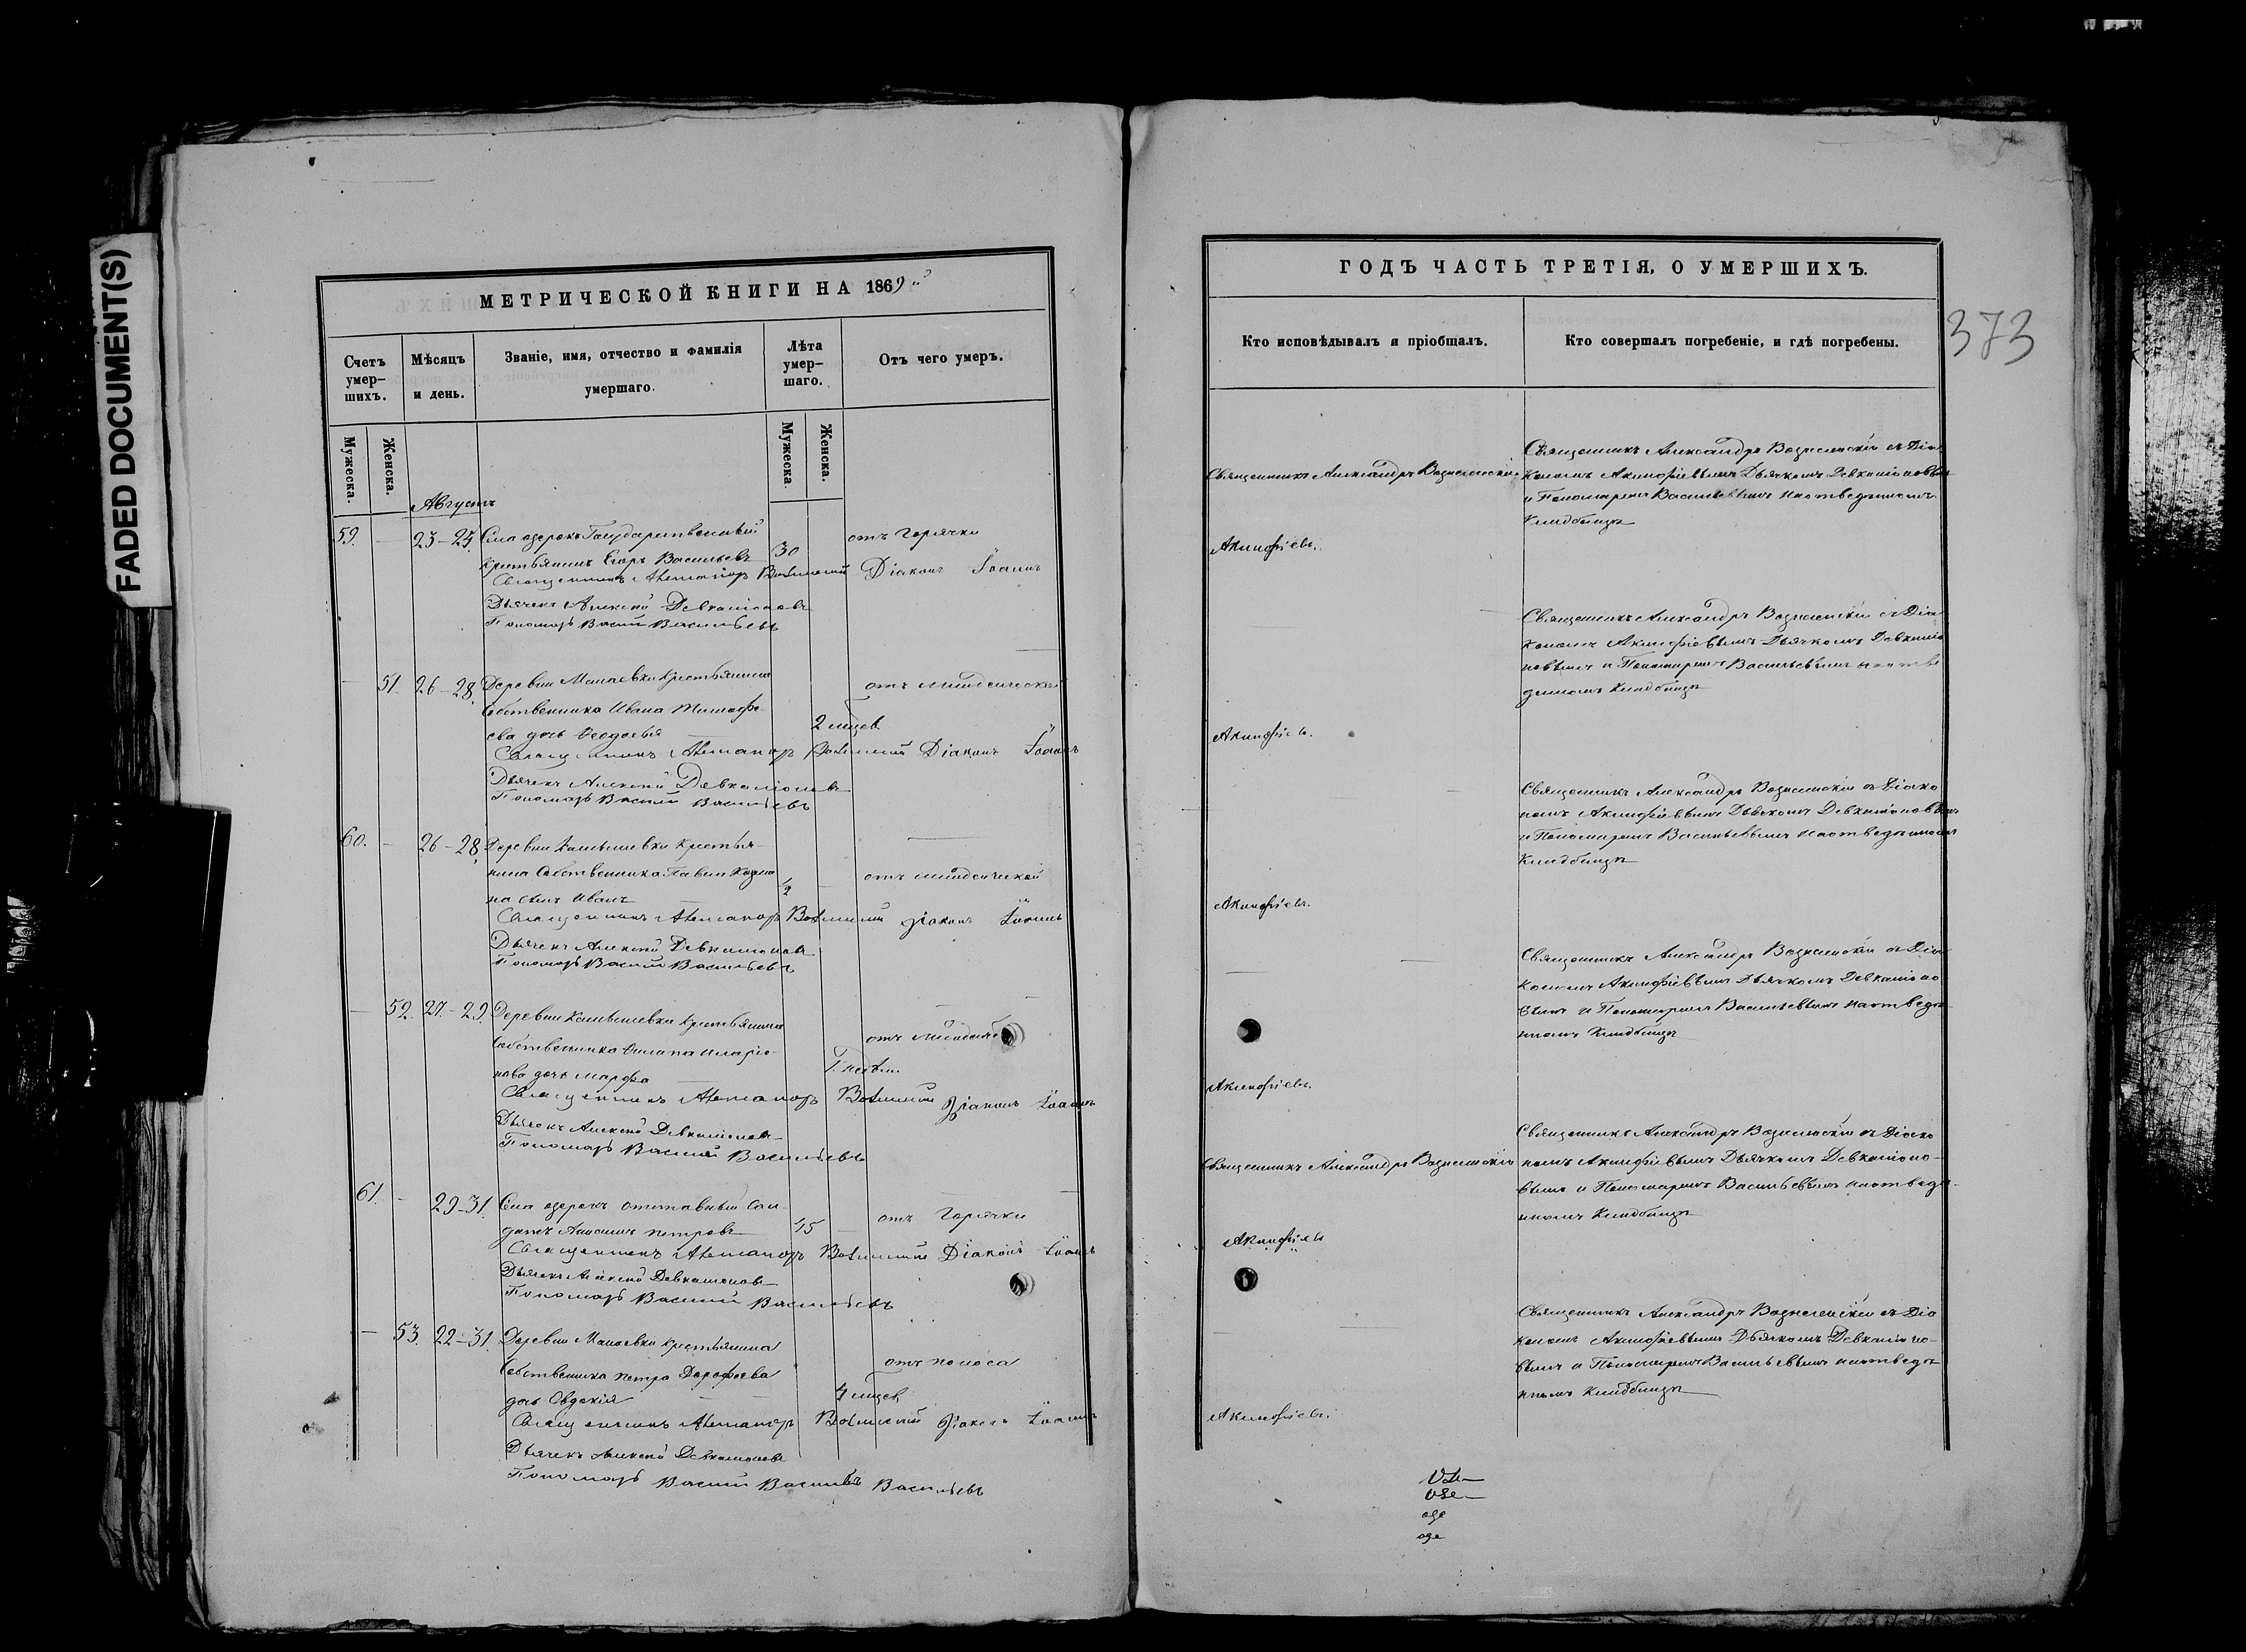 FADED DOCUMENT(S)
МЕТРИЧЕСКОЙ КНИГИ НА 1869й
Счетъ умер-шихъ.
Мѣсяцъ и день.
Званіе, имя, отчество и фамилія умершаго.
Лѣта умер-шаго.
Отъ чего умеръ.
Мужеска.
Женска.
Мужеска
Женска.
Августъ
59. — 23-25 Села озерокъ Государственный отъ горячки
крестьянинъ Егоръ Васильевъ 30
Священникъ Діаконъ Іоаннъ
Дьячекъ Алексѣй Девкаліоновъ
Пономарь Василій Васильевъ
— 51. 26-28. Деревни Манаевки крестьянина отъ младенческой
Собственника Ивана
ева дочь Ѳеодосья 2 мцев
Священникъ Діаконъ Іоаннъ
Дьячекъ Алексѣй Девкаліоновъ
Пономарь Василій Васильевъ
60. — 26-28, Деревни Камышевки крестья-
нина Собственника Павла Козми отъ младенческой
на сынъ Иванъ 1/2
Священникъ Діаконъ Іоаннъ
Дьячекъ Алексѣй Девкаліоновъ
Пономарь Василій Васильевъ
— 52. 27.-29. Деревни Камышевки крестьянина
Собственника отъ
нова дочь Марфа
Священникъ Діаконъ Іоаннъ
Дьячекъ Алексѣй Девкаліоновъ
Пономарь Василій Васильевъ
61. — 29-31. Села озерокъ отставный сол- отъ горячки
датъ Петровъ 45
Священникъ Діаконъ Іоаннъ
Дьячекъ Алексѣй Девкаліоновъ
Пономарь Василій Васильевъ
— 53. 22-31. Деревни Манаевки крестьянина
Собственника Петра Дорофеева отъ поноса
дочь Евдокія 4 мцев
Священникъ Діаконъ Іоаннъ
Дьячекъ Алексѣй Девкаліоновъ
Пономарь Василій Васильевъ
ГОДЪ ЧАСТЬ ТРЕТІЯ, О УМЕРШИХЪ.
373
Кто исповѣдывалъ я пріобщалъ.
Кто совершалъ погребеніе, и гдѣ погребены.
Священникъ Александръ Вознесенскій
Священникъ Александръ Вознесенскій съ Діа
кономъ Акинфіевымъ Дьячкомъ Девкаліоновымъ
и Пономаремъ Васильевымъ на отведенномъ
Кладбищѣ
Акинфіевъ.
Священникъ Александръ Вознесенскій съ Діа
кономъ Акинфіевымъ Дьячкомъ Девкаліо
новымъ и Пономаремъ Васильевымъ на отве
денномъ Кладбищѣ
Акинфіевъ.
Священникъ Александръ Вознесенскій съ Діако
номъ Акинфіевымъ Дьячкомъ Девкаліоновымъ
и Пономаремъ Васильевымъ на отведенномъ
Кладбищѣ
Акинфіевъ.
Священникъ Александръ Вознесенскій съ Діа
кономъ Акинфіевымъ Дьячкомъ Девкаліоно
вымъ и Пономаремъ Васильевымъ на отведе
нномъ Кладбищѣ
Акинфіевъ.
Священникъ Александръ Вознесенскій
Священникъ Александръ Вознесенскій съ Діако
номъ Акинфіевымъ Дьячкомъ Девкаліоно-
вымъ и Пономаремъ Васильевымъ на отведе-
нномъ Кладбищѣ
Акинфіевъ
Священникъ Александръ Вознесенскій съ Діа
кономъ Акинфіевымъ Дьячкомъ Девкаліоно-
вымъ и Пономаремъ Васильевымъ на отведе
нномъ Кладбищѣ
Акинфіевъ.